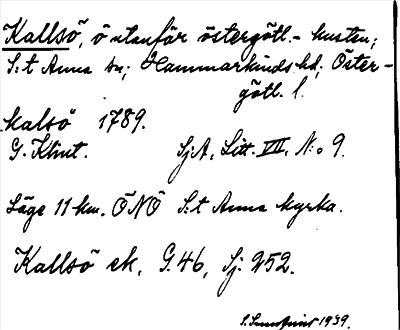 Kallsö, ö utanför östergötl.- kusten;
S:t Anna sn; Hammarkinds hd; Öster-
götl. l.
Kalsö 1789.
G. Klint. SjA, Litt. VII, N:o 9.
Läge 11 km. ÖNÖ S:t Anna kyrka.
Kallsö ek, G. 46, Sj. 252.
1939.